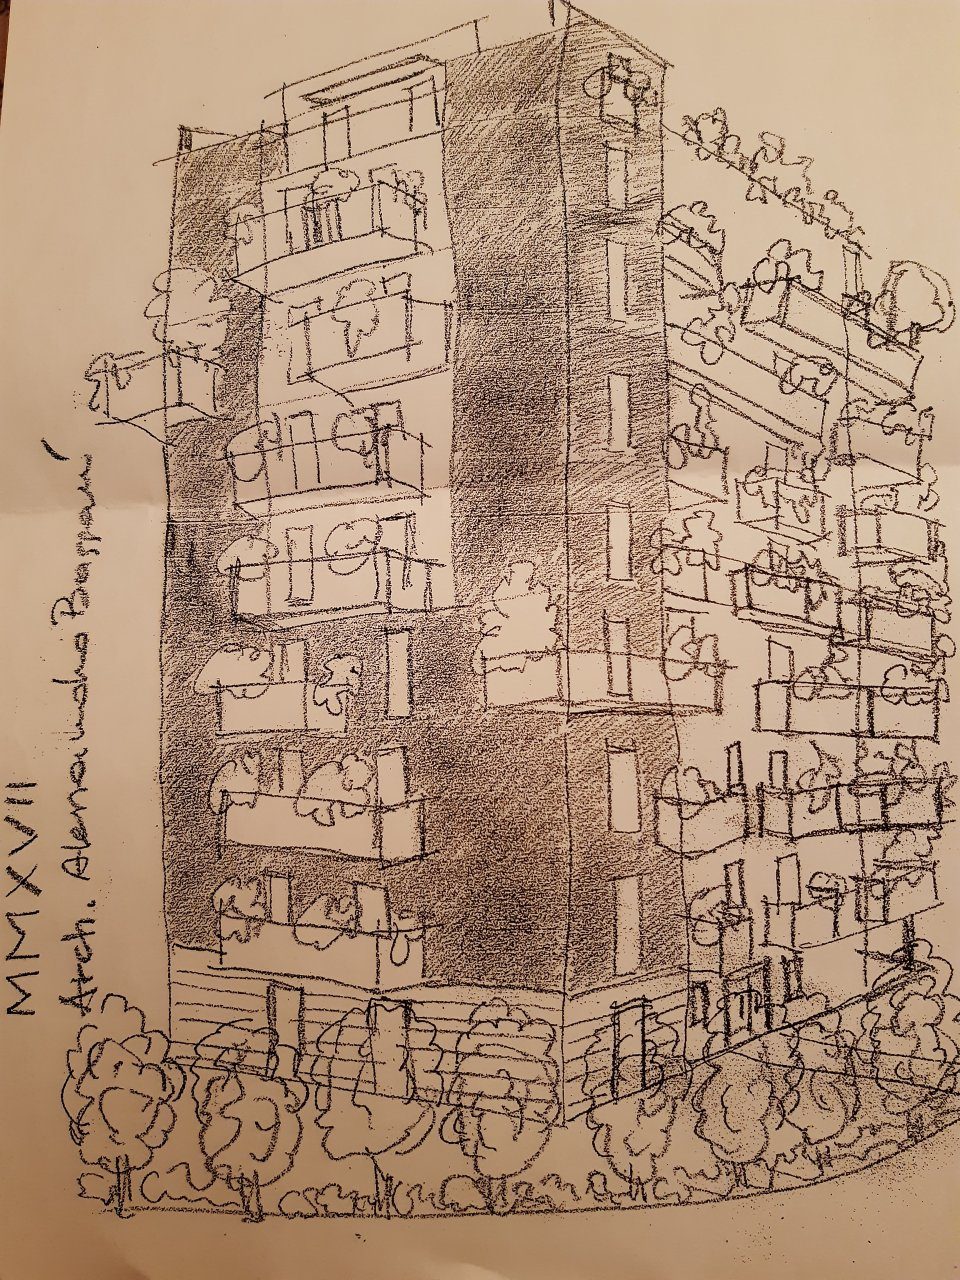 MMXVII
Arch. Alessandro Bosponi